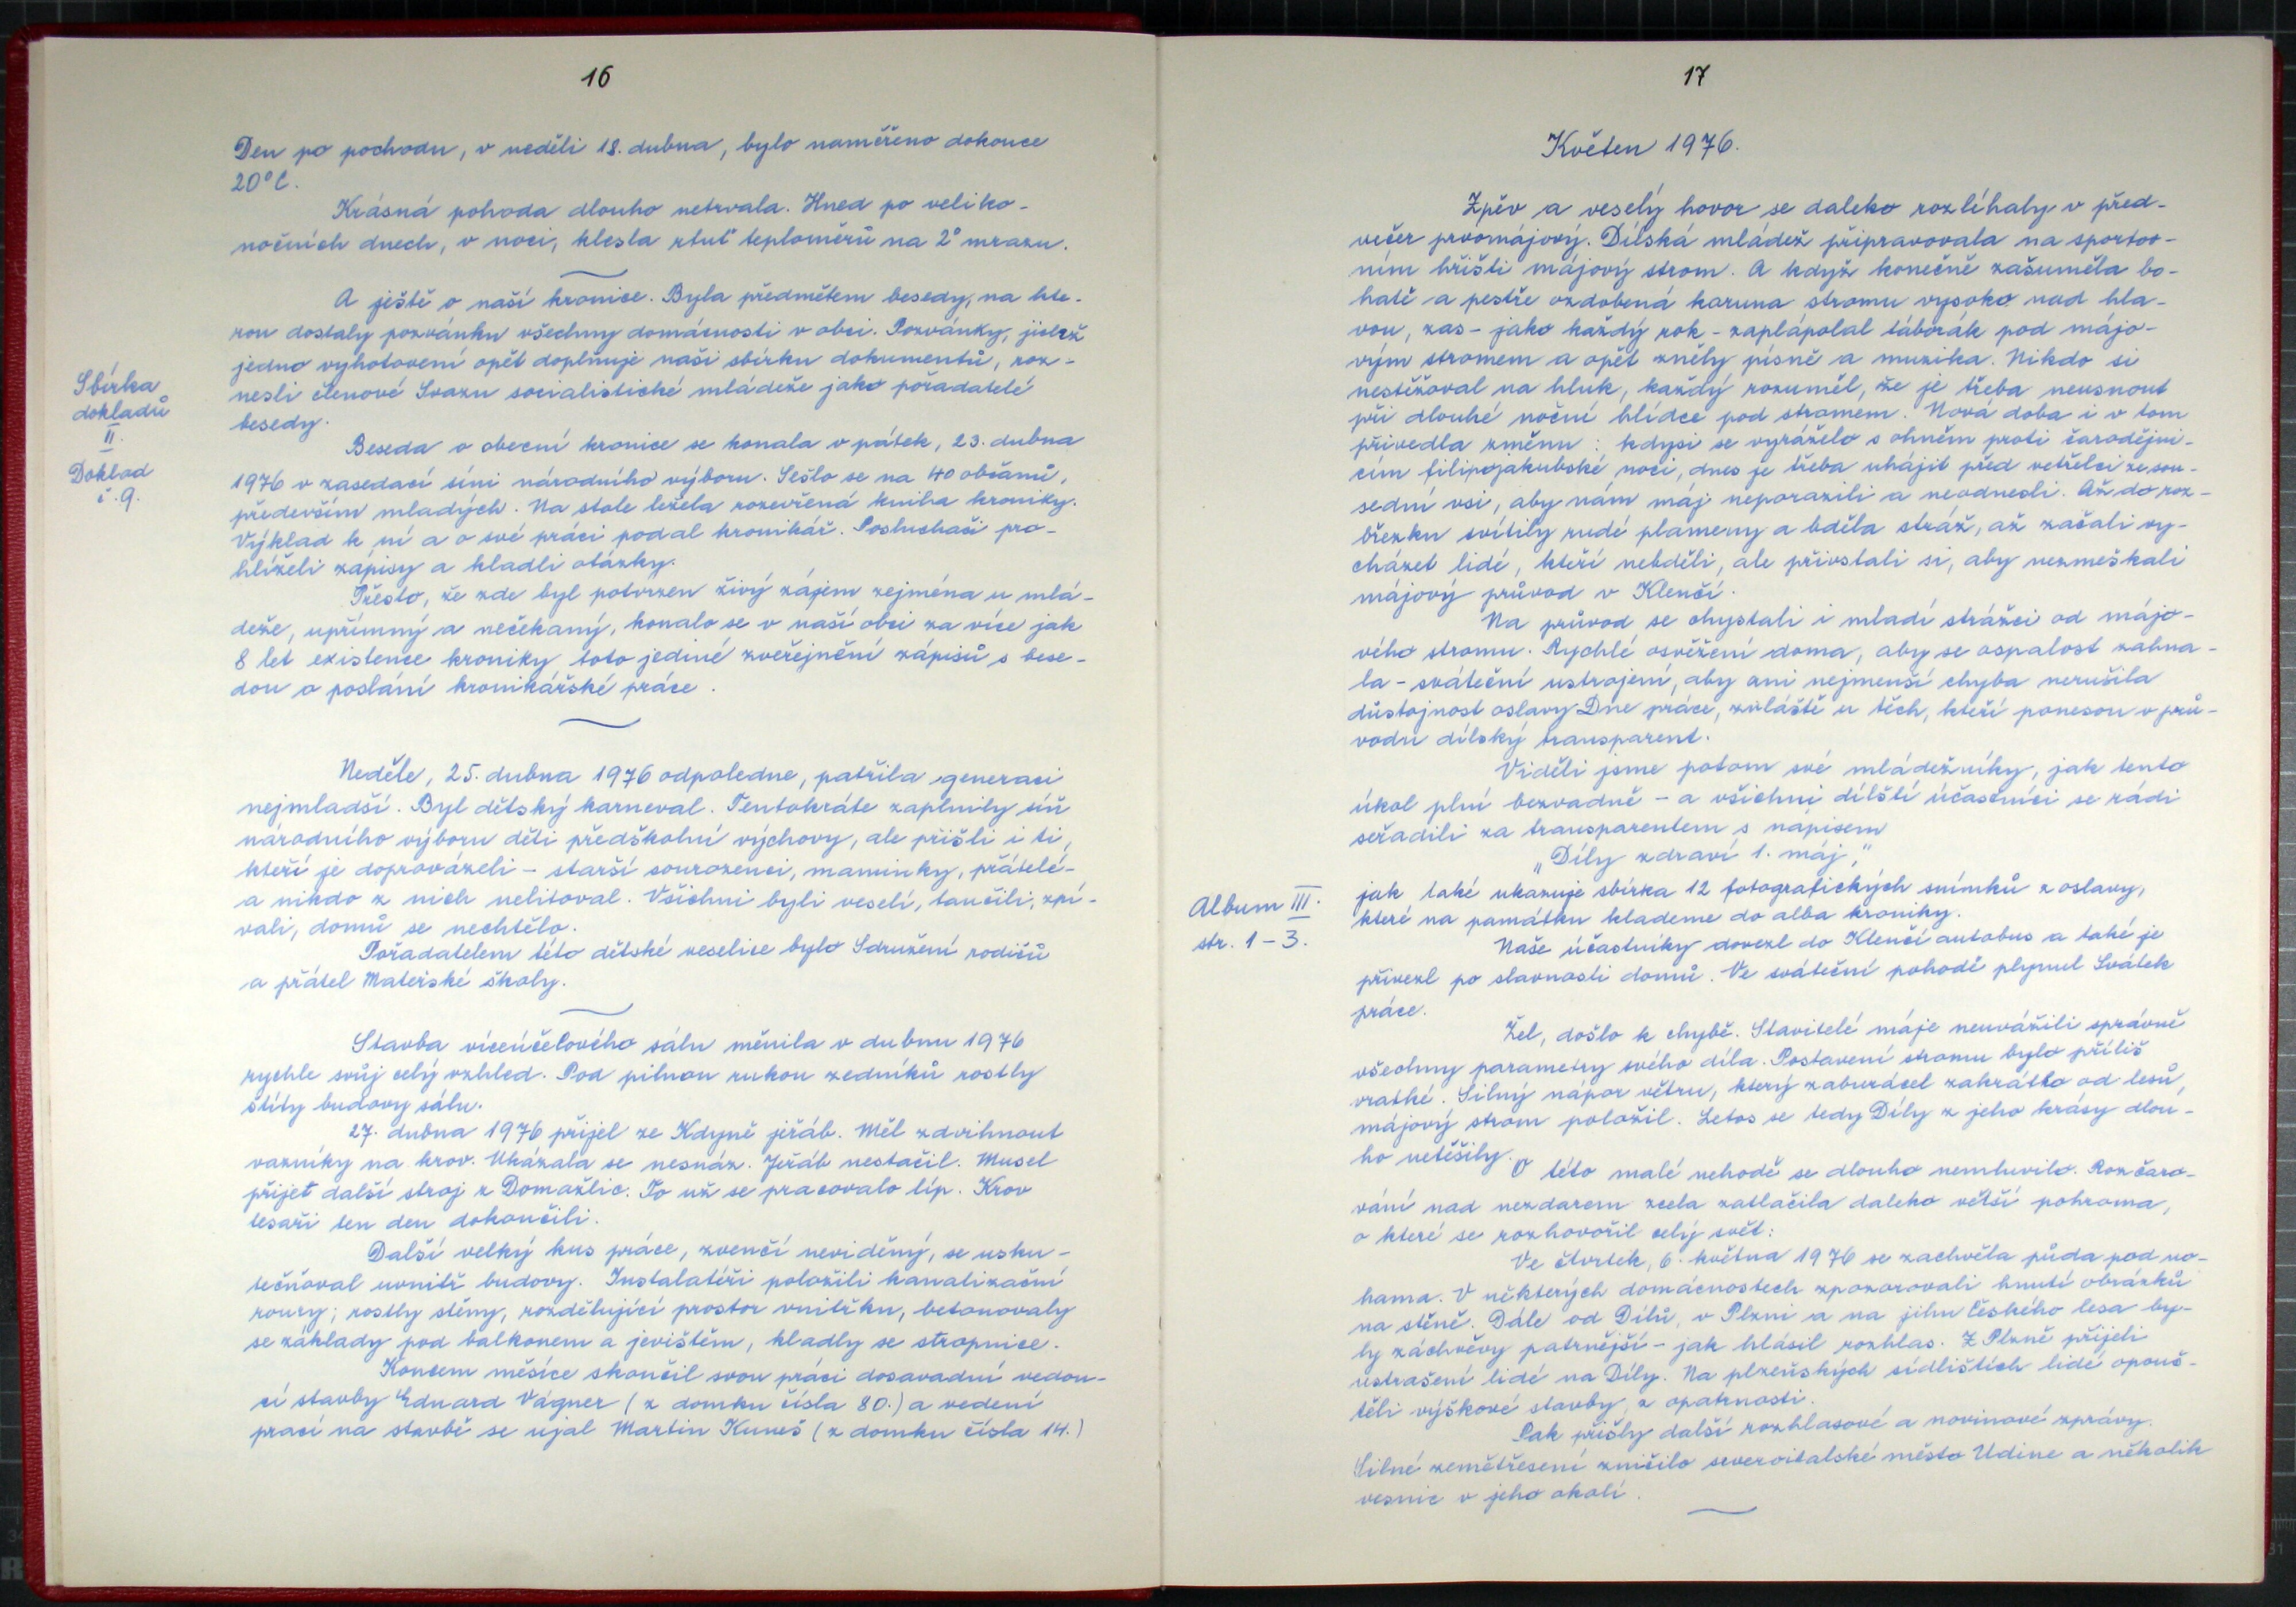 16
Den po pochodu, v neděli 18. dubna, bylo naměřeno dokonce
20°C.
Krásná pohoda dlouho netrvala. Hned po veliko-
nočních dnech, v noci, klesla rtuť teploměrů na 2° mrazu.
A ještě o naší kronice. Byla předmětem besedy, na kte-
rou dostaly pozvánku všechny domácnosti v obci. Pozvánky, jichž
jedno vyhotovení opět doplňuje naši sbírku dokumentů, roz-
nesli členové Svazu socialistické mládeže jako pořadatelé
besedy.
Sbírka
dokladů
II.
Doklad
č. 9.
Beseda o obecní kronice se konala v pátek, 23. dubna
1976 v zasedací síni národního výboru. Sešlo se na 40 občanů,
především mladých. Na stole ležela rozevřená kniha kroniky.
Výklad k ní a o své práci podal kronikář. Posluchači pro-
hlíželi zápisy a kladli otázky.
Přesto, že zde byl potvrzen živý zájem zejména u mlá-
deže, upřímný a nečekaný, konalo se v naší obci za více jak
8 let existence kroniky toto jediné zveřejnění zápisů s bese-
dou o poslání kronikářské práce.
Neděle, 25. dubna 1976 odpoledne, patřila generaci
nejmladší. Byl dětský karneval. Tentokráte zaplnily síň
národního výboru děti předškolní výchovy, ale přišli i ti,
kteří je doprovázeli - starší sourozenci, maminky, přátelé-
a nikdo z nich nelitoval. Všichni byli veselí, tančili, zpí-
vali, domů se nechtělo.
Pořadatelem této dětské veselice bylo Sdružení rodičů
a přátel Mateřské školy.
Stavba víceúčelového sálu měnila v dubnu 1976
rychle svůj celý vzhled. Pod pilnou rukou zedníků rostly
štíty budovy sálu.
27. dubna 1976 přijel ze Kdyně jeřáb. Měl zdvihnout
vazníky na krov. Ukázala se nesnáz. Jeřáb nestačil. Musel
přijet další stroj z Domažlic. To už se pracovalo líp. Krov
tesaři ten den dokončili.
Další velký kus práce, zvenčí neviděný, se usku-
tečňoval uvnitř budovy. Instalatéři položili kanalizační
roury; rostly stěny, rozdělující prostor vnitřku, betonovaly
se základy pod balkonem a jevištěm, kladly se stropnice.
Koncem měsíce skončil svou práci dosavadní vedou-
cí stavby Eduard Vágner (z domku čísla 80.) a vedení
prací na stavbě se ujal Martin Kuneš (z domku čísla 14.)
17
Květen 1976.
Zpěv a veselý hovor se daleko rozléhaly v před-
večer prvomájový. Dílská mládež připravovala na sportov-
ním hřišti májový strom. A když konečně zašuměla bo-
hatě a pestře ozdobená koruna stromu vysoko nad hla-
vou, zas - jako každý rok - zaplápolal táborák pod májo-
vým stromem a opět zněly písně a muzika. Nikdo si
nestěžoval na hluk, každý rozuměl, že je třeba neusnout
při dlouhé noční hlídce pod stromem. Nová doba i v tom
přivedla změnu: kdysi se vyráželo s ohněm proti čarodějni-
cím filipojakubské noci, dnes je třeba uhájit před vetřelci ze sou-
sední vsi, aby nám máj neporazili a neodnesli. Až do roz-
březku svítily rudé plameny a bděla stráž, až začali vy-
cházet lidé, kteří nebděli, ale přivstali si, aby nezmeškali
májový průvod v Klenčí.
Na průvod se chystali i mladí strážci od májo-
vého stromu. Rychlé osvěžení doma, aby se ospalost zahna-
la - sváteční ustrojení, aby ani nejmenší chyba nerušila
důstojnost oslavy Dne práce, zvláště u těch, kteří ponesou v prů-
vodu dílský transparent.
Viděli jsme potom své mládežníky, jak tento
úkol plní bezvadně - a všichni dílští účastníci se rádi
seřadili za transparentem s nápisem
„Díly zdraví 1. máj,"
jak také ukazuje sbírka 12 fotografických snímků z oslavy,
které na památku klademe do alba kroniky.
Album III.
str. 1-3.
Naše účastníky dovezl do Klenčí autobus a také je
přivezl po slavnosti domů. Ve sváteční pohodě plynul Svátek
práce.
Žel, došlo k chybě. Stavitelé máje neuvážili správně
všechny parametry svého díla. Postavení stromu bylo příliš
vratké. Silný nápor větru, který zaburácel zakrátko od lesů,
májový strom položil. Letos se tedy Díly z jeho krásy dlou-
ho netěšily.
O této malé nehodě se dlouho nemluvilo. Rozčaro-
vání nad nezdarem zcela zatlačila daleko větší pohroma,
o které se rozhovořil celý svět:
Ve čtvrtek, 6. května 1976 se zachvěla půda pod no-
hama. V některých domácnostech zpozorovali hnutí obrázků
na stěně. Dále od Dílů, v Plzni a na jihu Českého lesa by-
ly záchvěvy patrnější - jak hlásil rozhlas. Z Plzně přijeli
ustrašení lidé na Díly. Na plzeňských sídlištích lidé opouš-
těli výškové stavby z opatrnosti.
Pak přišly další rozhlasové a novinové zprávy.
Silné zemětřesení zničilo severoitalské město Udine a několik
vesnic v jeho okolí.